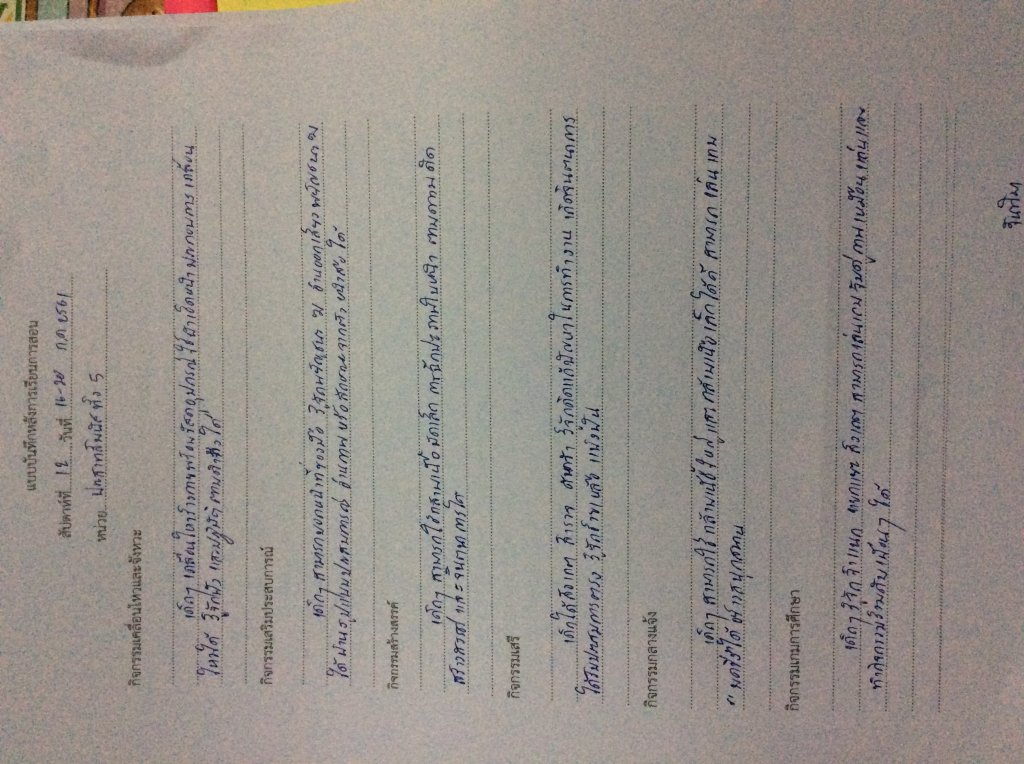 แบบบันทึกหลังการเรียนการสอน
สัปดาห์ที่ 12 วันที่ 16-20 ก.ค 2561
หน่วย ประสาทสัมผัสทั้ง 5
กิจกรรมเคลื่อนไหวและจังหวะ
เด็กๆ เคลื่อนไหวร่างกายพร้อมวัสดุอุปกรณ์ ใช้ผ้าเช็ดหน้าประกอบการเคลื่อน
ไหวได้ รู้จักฟัง และปฏิบัติตามคำสั่งได้
กิจกรรมเสริมประสบการณ์
เด็กๆ สามารถบอกหน้าที่ของมือ รู้จักพยัญชนะ ฆ อ่านออกเสียงพยัญชนะ ฆ
ได้ ผ่านรูปแบบประสบการณ์ อ่านภาพ หรือสัญลักษณ์จากตัวหนังสือได้
กิจกรรมสร้างสรรค์
เด็กๆ สามารถใช้กล้ามเนื้อมัดเล็ก การฉีกปะภาพใบหน้า ตามความคิด
สร้างสรรค์และจินตนาการได้
กิจกรรมเสรี
เด็กได้สังเกต สำรวจ ค้นคว้า รู้จักคิดแก้ปัญหาในการทำงาน เกิดจินตนาการ
ได้รับประสบการณ์ตรง รู้จักช่วยเหลือ แบ่งปัน
กิจกรรมกลางแจ้ง
เด็กๆ สามารถใช้กล้ามเนื้อใหญ่และกล้ามเนื้อเล็กได้ดี สามารถเล่นเกม
ได้อย่างสนุกสนาน
กิจกรรมเกมการศึกษา
เด็กๆ รู้จัก จำแนก แยกแยะ สังเกต สามารถเล่นเกมจับคู่ภาพเหมือน เล่นและ
ทำกิจกรรมร่วมกับเพื่อนๆ ได้